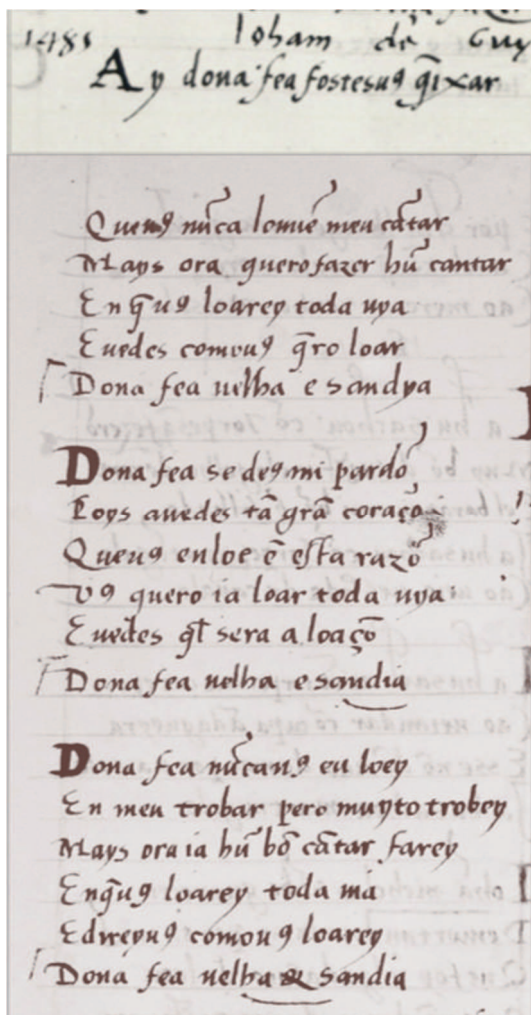 1485 Ioham de Guy
Ay dona fea fostesuꝯ q̄ixar
Queuꝯ nūca louuē meu cātar
Mays ora querofazer hū cantar
En q̄ uꝯ loarey toda uya
Euedes comouꝯ q̄ro loar
Dona fea uelha e sandya
Dona fea se deꝯ mi pardō
Poys auedes tā grā coraçō
Queuꝯ enloe ē esta razō
Vꝯ quero ia loar toda uya
Euedes q̄l sera a loaçō
Dona fea uelha e sandia
Dona fea nūcauꝯ eu loey
En meu trobar pero muyto trobey
Mays ora ia hū bō cātar farey
Enq̄uꝯ loarey toda uia
Edireyuꝯ comouꝯ loarey
Dona fea uelha & sandia